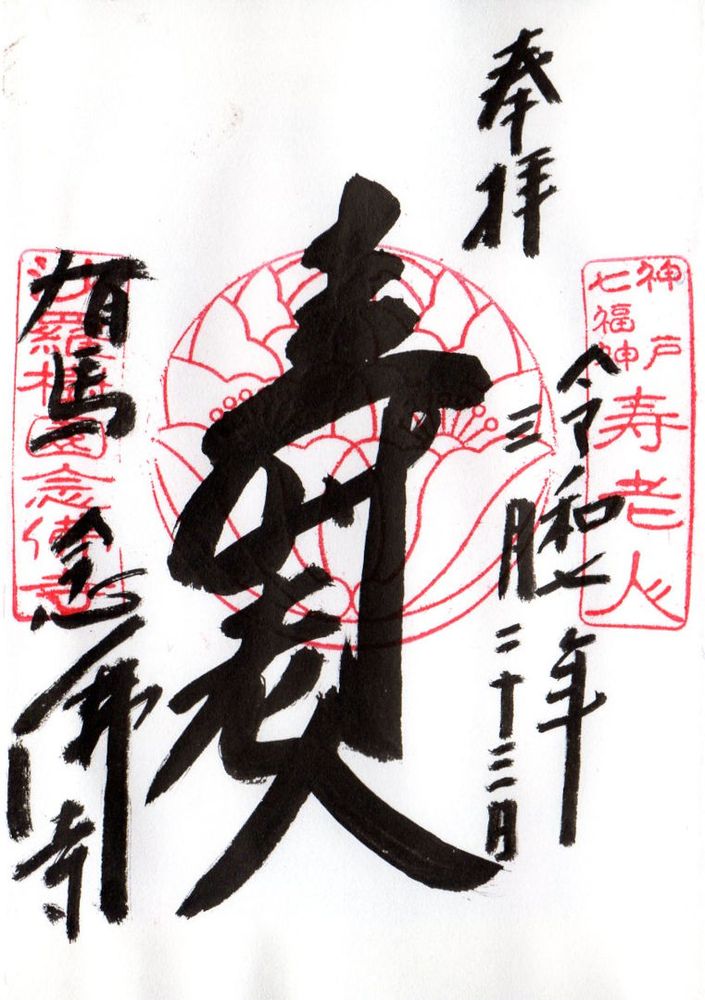 奉拝
神戸
七福神
寿老人
令和七年
三月二十三日
寿老人
沙羅樹園念佛寺
有馬
念佛寺